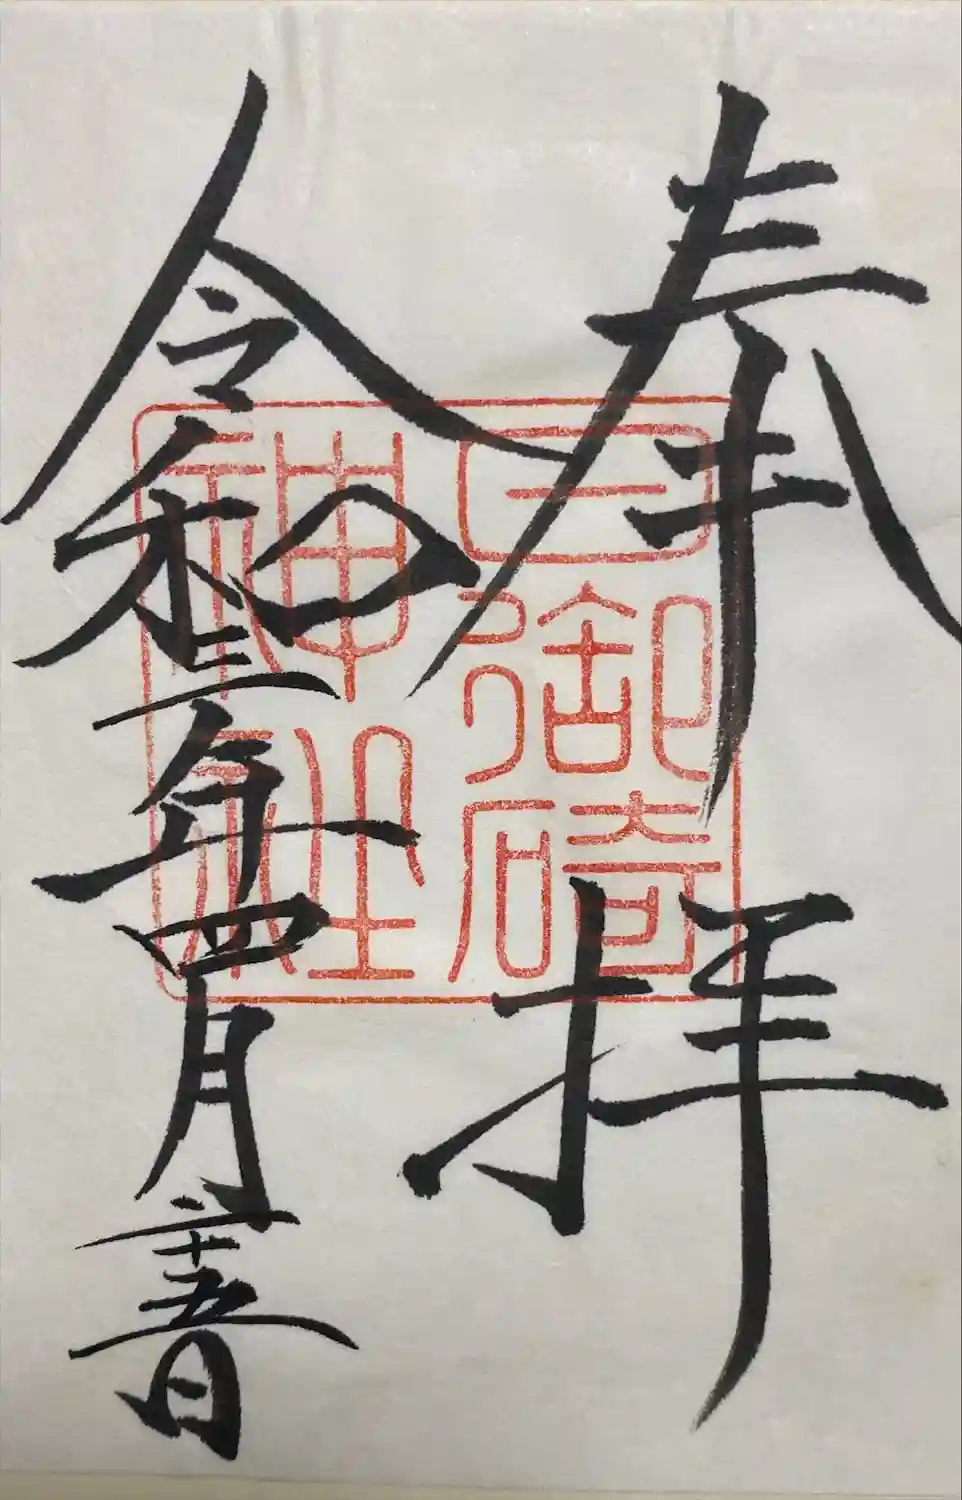 奉拝
日御碕
神社
令和三年四月二十五日